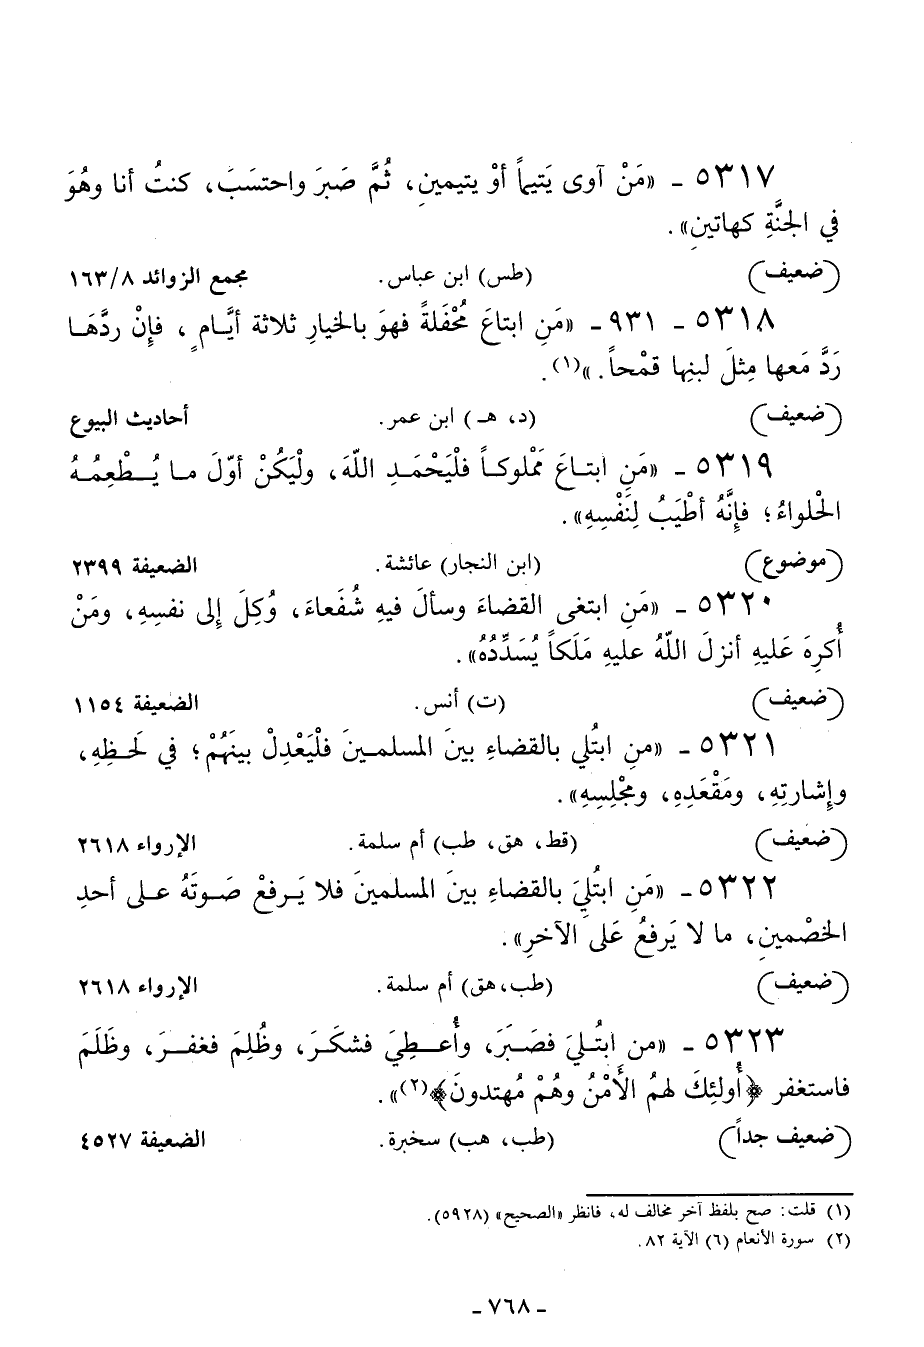 ٥٣١٧ - «مَنْ آوى يَتيماً أوْ يتيمينِ، ثُمَّ صَبَرَ واحتسَبَ، كنتُ أنا وهُوَ
في الجنَّةِ كهاتينِ».
(ضعيف) (طس) ابن عباس. مجمع الزوائد ١٦٣/٨
٥٣١٨ - ٩٣١ - «مَنِ ابتاعَ مُحْفَلةً فهوَ بالخيارِ ثلاثة أيَّامٍ، فإنْ ردَّهَا
رَدَّ مَعها مِثلَ لبنِها قمْحاً.»(١).
(ضعيف) (د، هـ) ابن عمر. أحاديث البيوع
٥٣١٩ - «مَنِ ابتاعَ مَمْلوكاً فلْيَحْمَدِ اللّهَ، ولْيَكُنْ أوّلَ ما يُطْعِمُهُ
الحْلواءُ؛ فإنَّهُ أطْيَبُ لِنَفْسِهِ».
(موضوع) (ابن النجار) عائشة. الضعيفة ٢٣٩٩
٥٣٢٠ - «مَنِ ابتغى القضاءَ وسألَ فيهِ شُفَعاءَ، وُكِلَ إلى نفسِهِ، ومَنْ
أُكرِهَ عَليهِ أنزلَ اللّهُ عليهِ مَلَكاً يُسَدِّدُهُ».
(ضعيف) (ت) أنس. الضعيفة ١١٥٤
٥٣٢١ - «منِ ابتُلي بالقضاءِ بينَ المسلمينَ فلْيَعْدِلْ بينَهُمْ؛ في لَحظِهِ،
وإشارتِهِ، ومَقْعَدِهِ، ومجْلِسِهِ».
(ضعيف) (قط، هق، طب) أم سلمة. الإرواء ٢٦١٨
٥٣٢٢ - «مَنِ ابتُليَ بالقضاءِ بينَ المسلمينَ فلا يَرفعْ صَوتَهُ على أحدِ
الخصْمينِ، ما لا يَرفعُ عَلى الآخرِ».
(ضعيف) (طب، هق) أم سلمة. الإرواء ٢٦١٨
٥٣٢٣ - «من ابتُليَ فصَبَرَ، وأُعطِيَ فشكَرَ، وظُلِمَ فغفرَ، وظَلَمَ
فاستغفر ﴿أُولئِكَ لهمُ الأمْنُ وهُمْ مُهتدونَ﴾(٢)».
(ضعيف جداً) (طب، هب) سخبرة. الضعيفة ٤٥٢٧
(١) قلت: صح بلفظ آخر مخالف له، فانظر «الصحيح» (٥٩٢٨).
(٢) سورة الأنعام (٦) الآية ٨٢.
- ٧٦٨ -